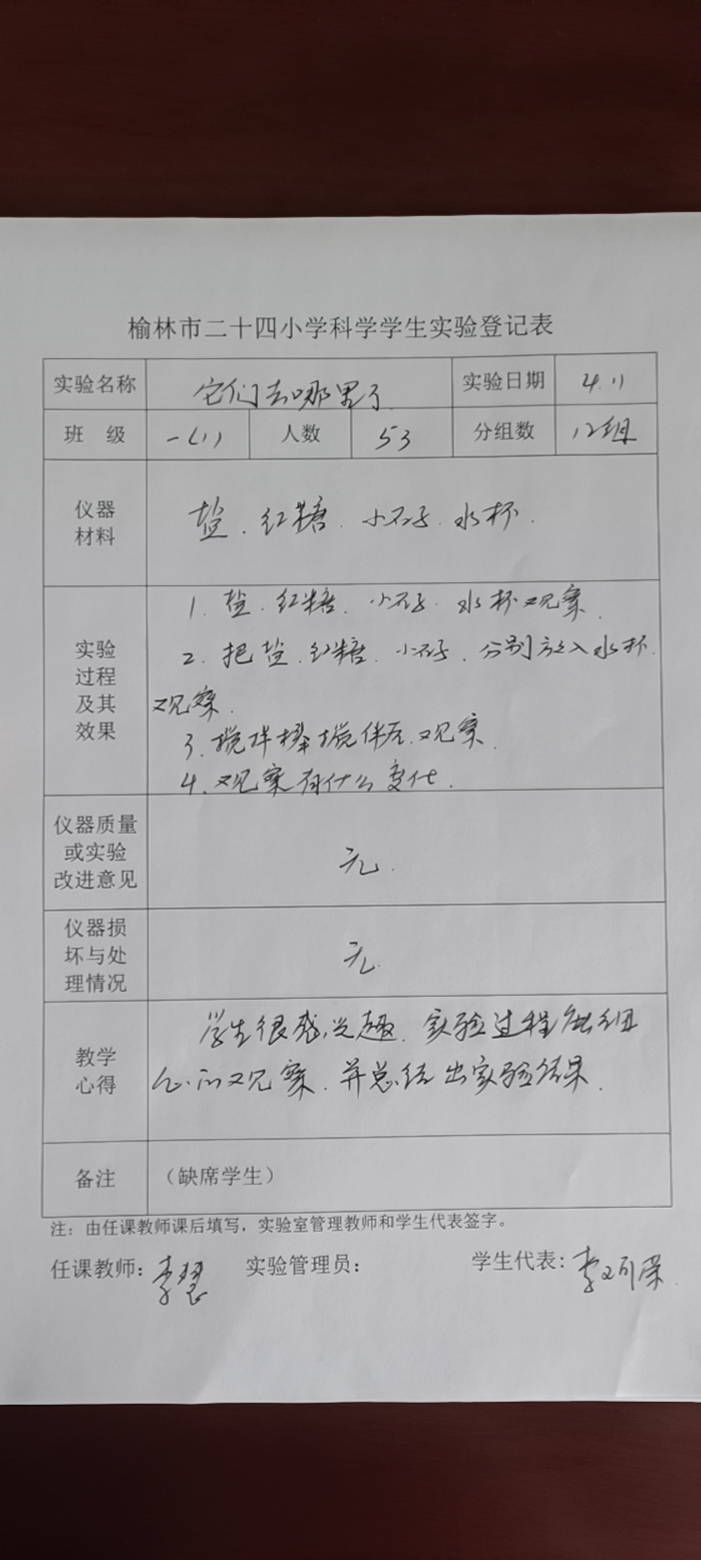 榆林市二十四小学科学学生实验登记表
实验名称 它们去哪里了 实验日期 4.11
班 级 一(1) 人数 53 分组数 12组
仪器材料 盐.红糖.小石子.水杯.
实验过程及其效果
1.盐.红糖.小石子.水杯观察.
2.把盐.红糖.小石子.分别放入水杯.
观察.
3.搅拌棒搅伴后.观察.
4.观察有什么变化.
仪器质量或实验改进意见 无.
仪器损坏与处理情况 无.
教学心得
学生很感兴趣.实验过程能细
心的观察.并总结出实验结果.
备注 （缺席学生）
注：由任课教师课后填写，实验室管理教师和学生代表签字。
任课教师：李慧 实验管理员： 学生代表：李